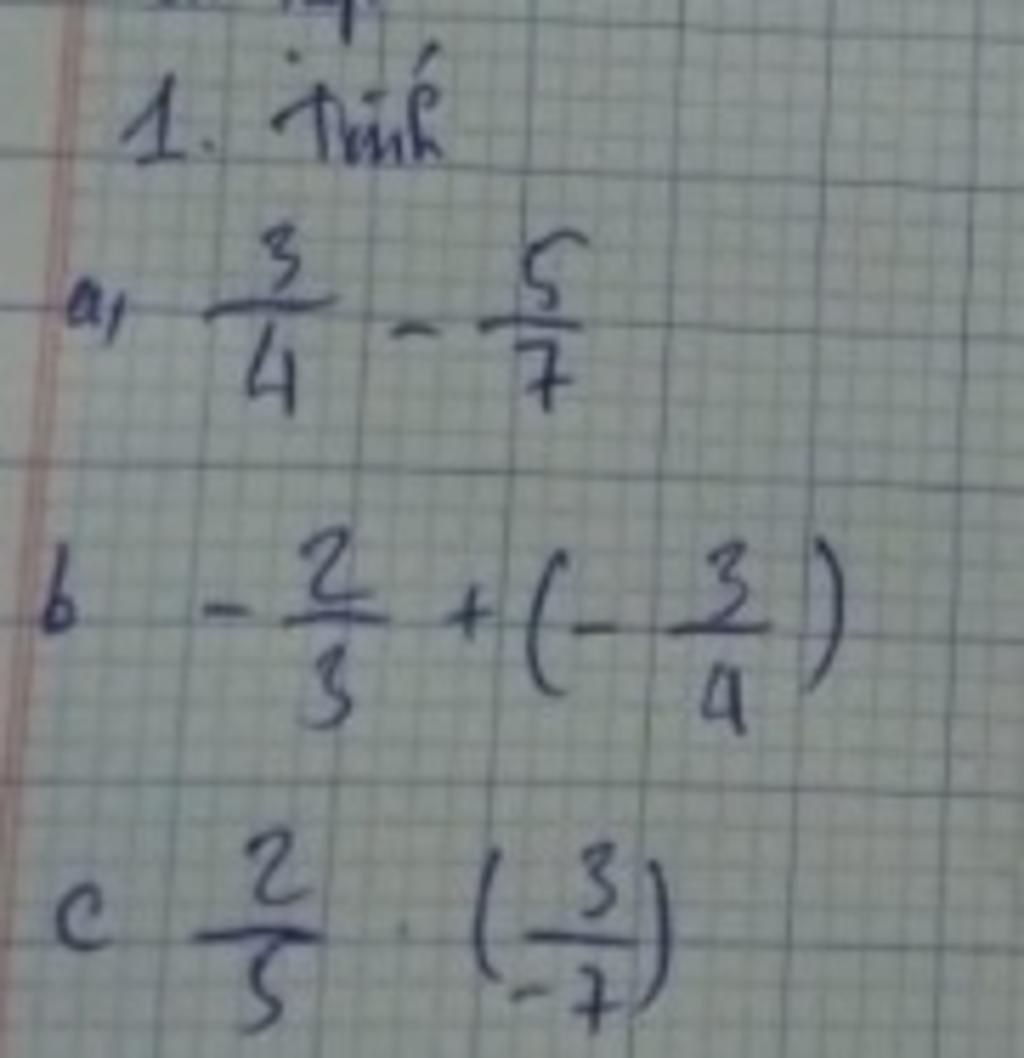 1. Tính
a, \frac{3}{4} - \frac{5}{7}
b - \frac{2}{3} + (- \frac{3}{4})
c \frac{2}{5} . (\frac{3}{-7})